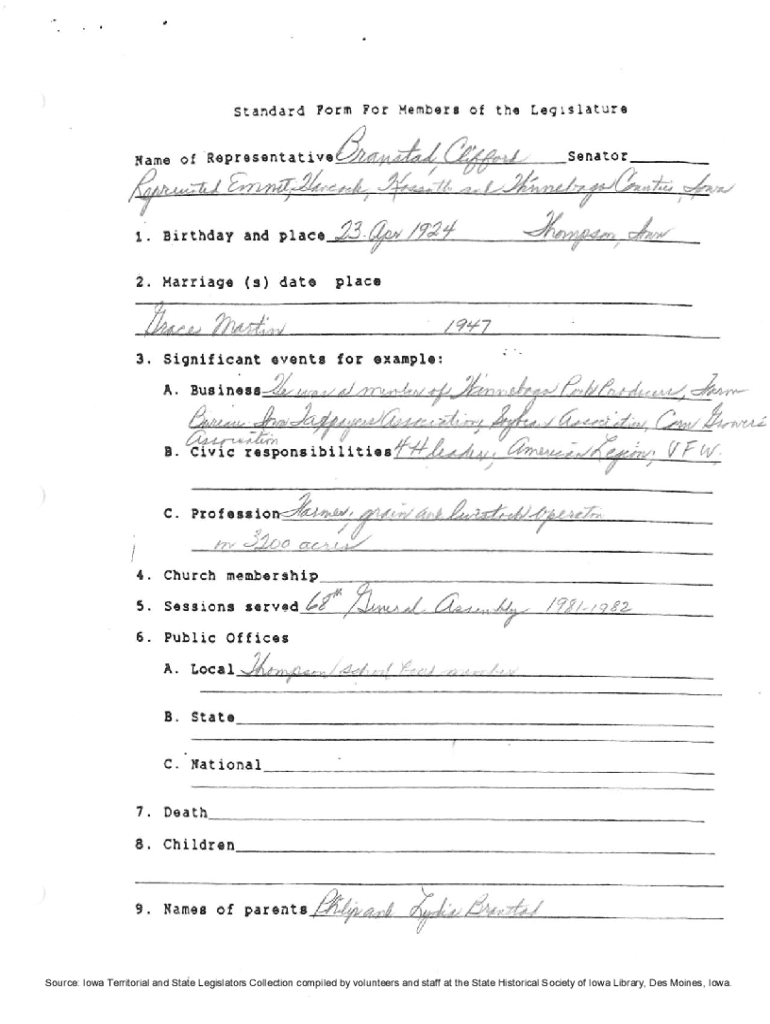 Standard Form For Members of the Legislature
Name of Representative Branstad, Clifford Senator
Represented Emmet, Hancock, Kossuth and Winnebago Counties, Iowa
1. Birthday and place 23 Apr 1924 Thompson, Iowa
2. Marriage (s) date place
Grace Martin 1947
3. Significant events for example:
A. Business He was a member of Winnebago Pork Producers, Farm
Bureau Iowa Taxpayers Association, Soybean Association, Corn Growers
Association
B. Civic responsibilities 4H leader, American Legion, VFW.
C. Profession Farmer, grain and livestock operator
on 3200 acres
4. Church membership
5. Sessions served 68th General Assembly 1981-1982
6. Public Offices
A. Local Thompson school board member
B. State
C. National
7. Death
8. Children
9. Names of parents Philip and Lydia Branstad
Source: Iowa Territorial and State Legislators Collection compiled by volunteers and staff at the State Historical Society of Iowa Library, Des Moines, Iowa.